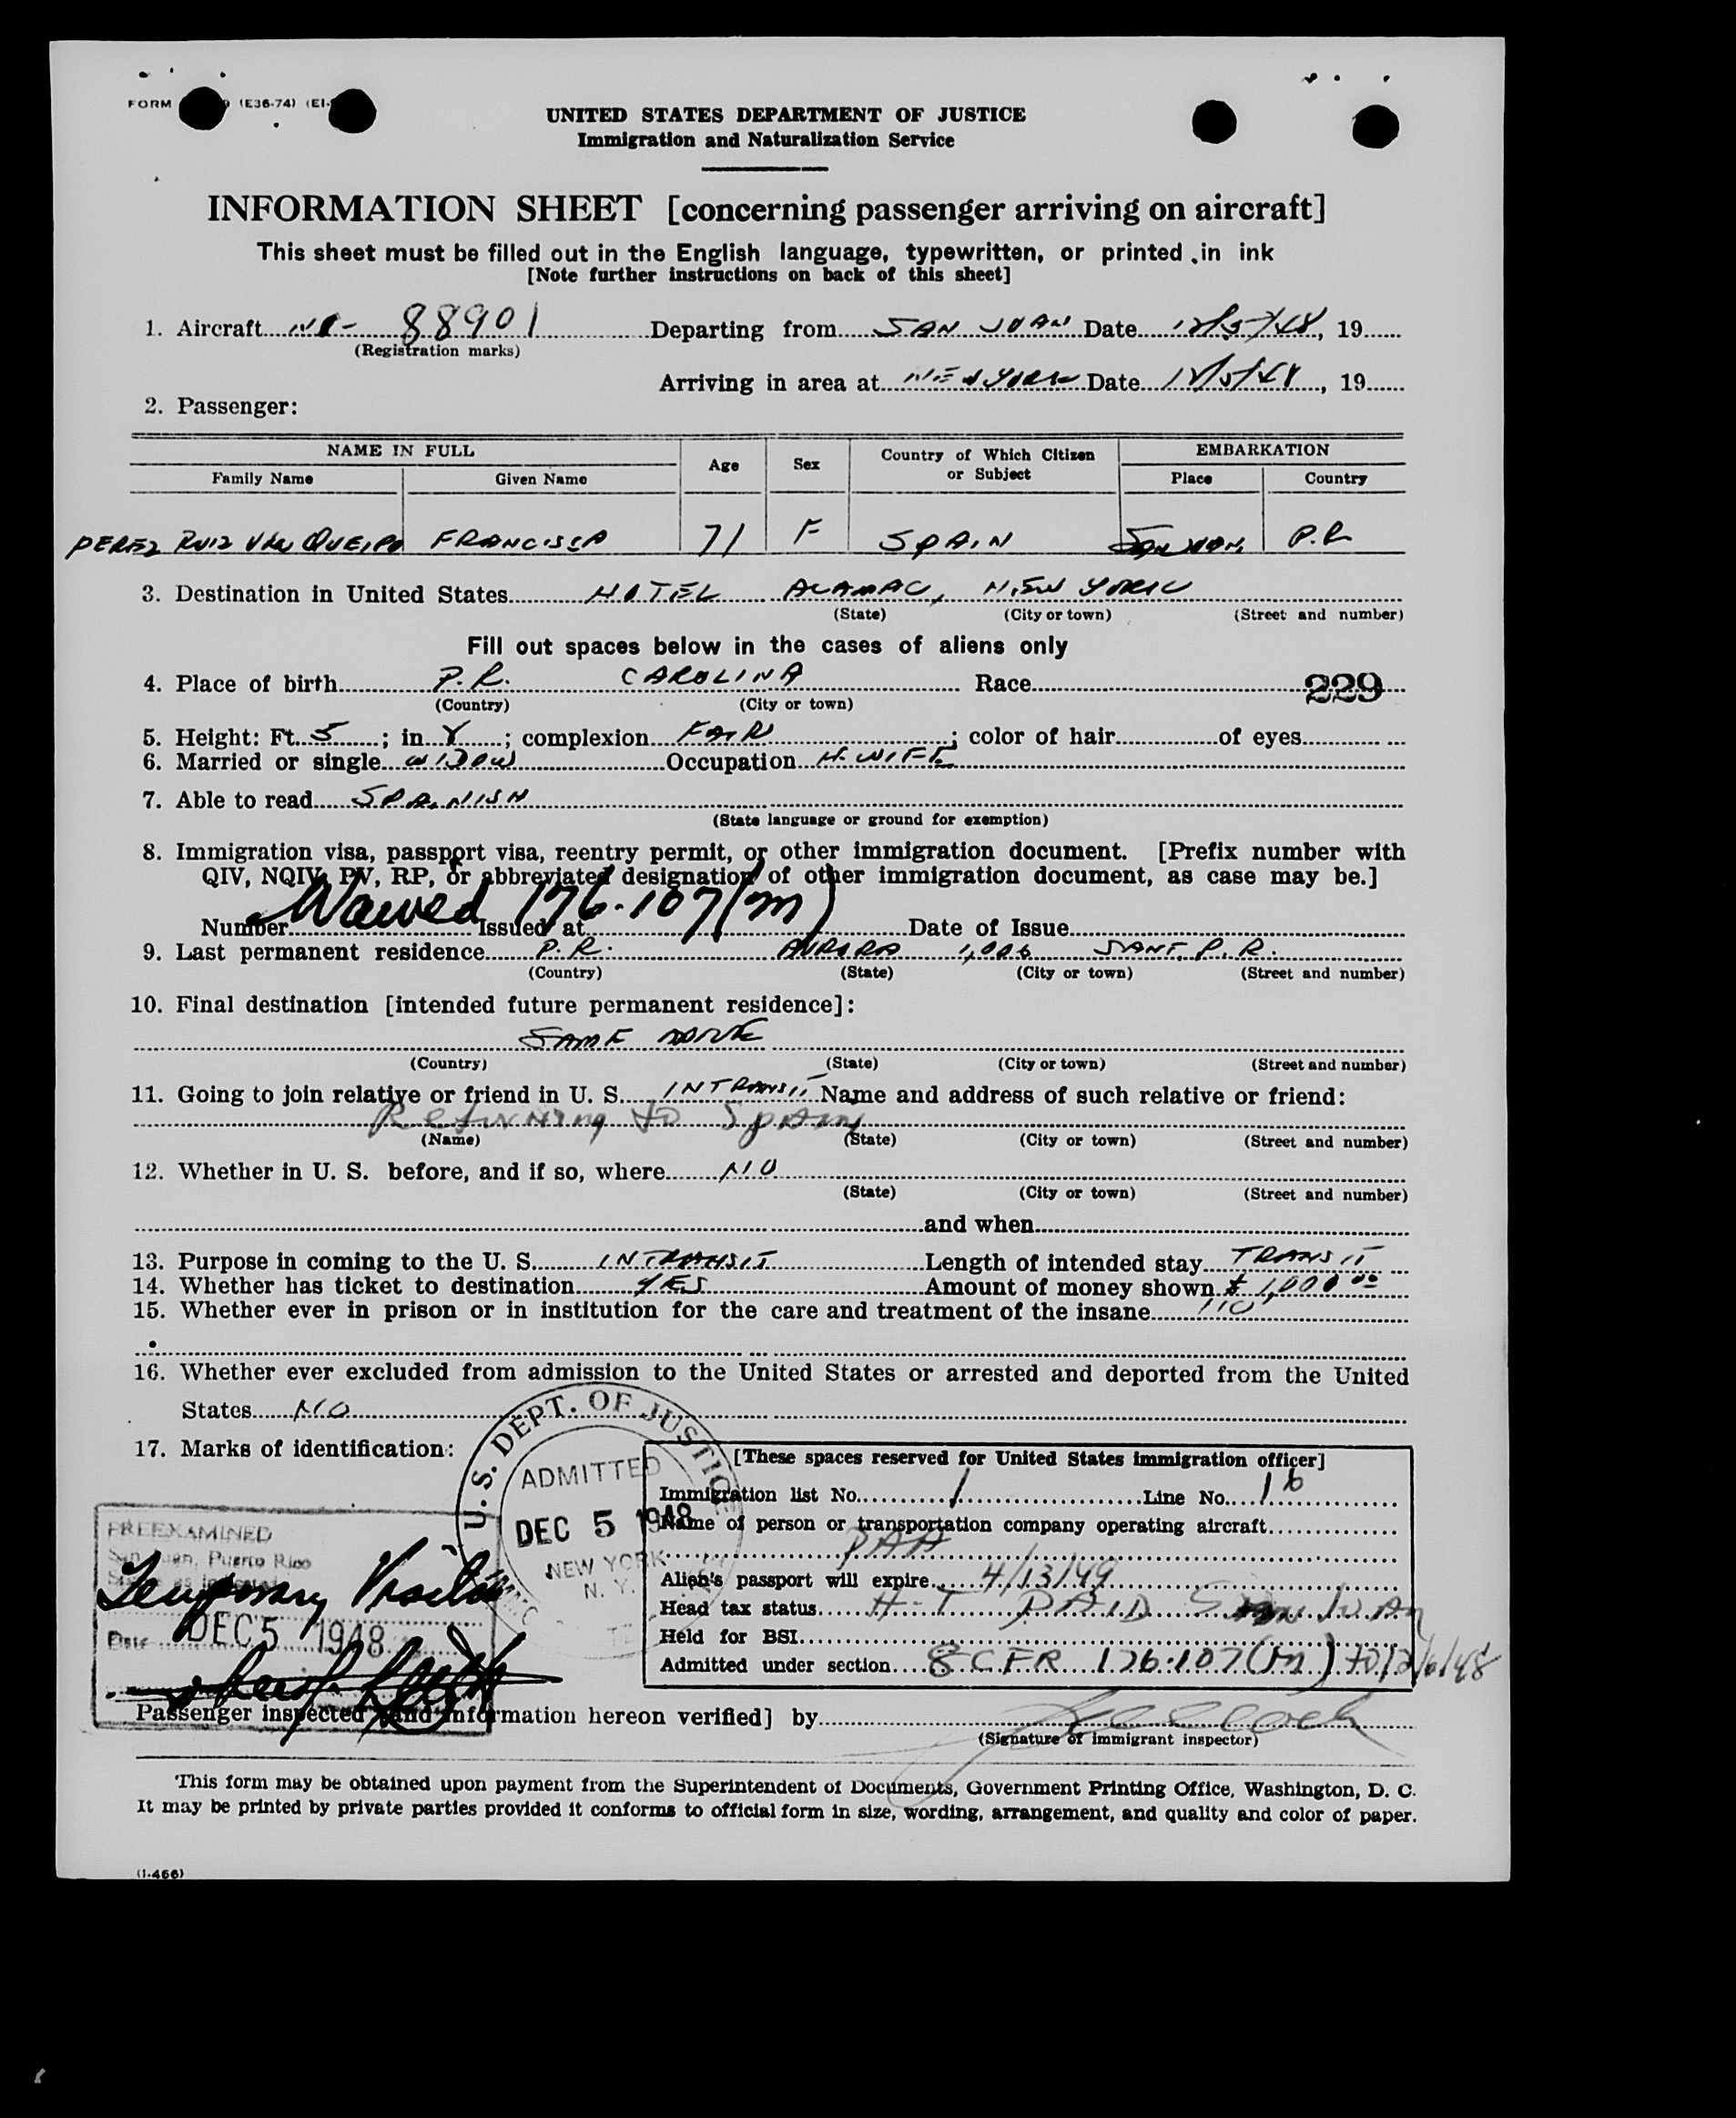 FORM (E36-74) (EI-
UNITED STATES DEPARTMENT OF JUSTICE
Immigration and Naturalization Service
INFORMATION SHEET [concerning passenger arriving on aircraft]
This sheet must be filled out in the English language, typewritten, or printed in ink
[Note further instructions on back of this sheet]
1. Aircraft 88901 Departing from SAN JUAN Date 12/5/48, 19
(Registration marks)
Arriving in area at NEW YORK Date 12/5/48, 19
2. Passenger:
NAME IN FULL Age Sex Country of Which Citizen or Subject EMBARKATION
Family Name Given Name Place Country
PEREZ RUIZ QUEIPO FRANCISCA 71 F SPAIN SAN JUAN P.R.
3. Destination in United States HOTEL ALAMAC, NEW YORK
(State) (City or town) (Street and number)
Fill out spaces below in the cases of aliens only
4. Place of birth P.R. CAROLINA Race 229
(Country) (City or town)
5. Height: Ft. 5; in; complexion FAIR; color of hair of eyes
6. Married or single WIDOW Occupation H. WIFE
7. Able to read SPANISH
(State language or ground for exemption)
8. Immigration visa, passport visa, reentry permit, or other immigration document. [Prefix number with
QIV, NQIV, PV, RP, or abbreviated designation of other immigration document, as case may be.]
Number Waived 176.107(m) Issued at Date of Issue
9. Last permanent residence P.R. AURORA 1,006 SANT. P.R.
(Country) (State) (City or town) (Street and number)
10. Final destination [intended future permanent residence]:
SAME
(Country) (State) (City or town) (Street and number)
11. Going to join relative or friend in U. S. INTRANSIT Name and address of such relative or friend:
Returning to Spain
(Name) (State) (City or town) (Street and number)
12. Whether in U. S. before, and if so, where NO
(State) (City or town) (Street and number)
and when
13. Purpose in coming to the U. S. INTRANSIT Length of intended stay TRANSIT
14. Whether has ticket to destination YES Amount of money shown $ 1,000 00
15. Whether ever in prison or in institution for the care and treatment of the insane NO
16. Whether ever excluded from admission to the United States or arrested and deported from the United
States NO
17. Marks of identification:
U.S. DEPT. OF JUSTICE
ADMITTED
DEC 5 1948
NEW YORK
N. Y.
[These spaces reserved for United States immigration officer]
Immigration list No. 1 Line No. 16
Name of person or transportation company operating aircraft
PAA
Alien's passport will expire 4/13/49
Head tax status H-T PAID San Juan
Held for BSI
Admitted under section 8 CFR 176.107(m) to 12/6/48
PREEXAMINED
San Juan, Puerto Rico
Temporary Visitor
Date DEC 5 1948
Passenger inspected [and information hereon verified] by
(Signature of immigrant inspector)
This form may be obtained upon payment from the Superintendent of Documents, Government Printing Office, Washington, D. C.
It may be printed by private parties provided it conforms to official form in size, wording, arrangement, and quality and color of paper.
(1-466)